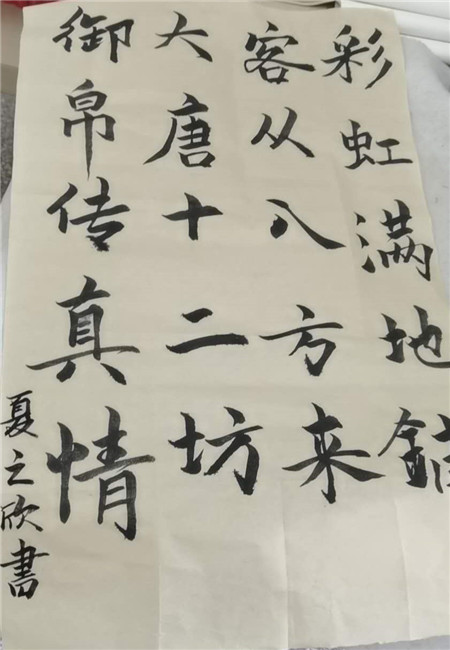 彩虹满地
客从八方来
大唐十二坊
御帛传真情
夏之欣書